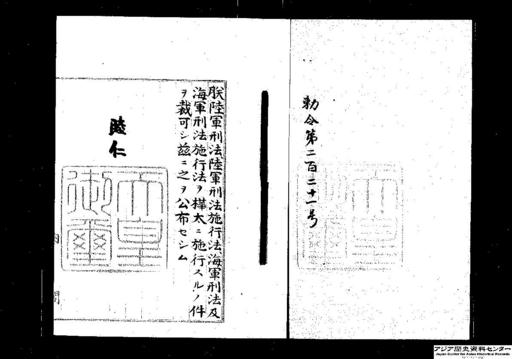 勅令第二百二十一号
朕陸軍刑法陸軍刑法施行法海軍刑法及
海軍刑法施行法ヲ樺太ニ施行スルノ件
ヲ裁可シ茲ニ之ヲ公布セシム
睦仁
天皇
御璽
アジア歴史資料センター
Japan Center for Asian Historical Records